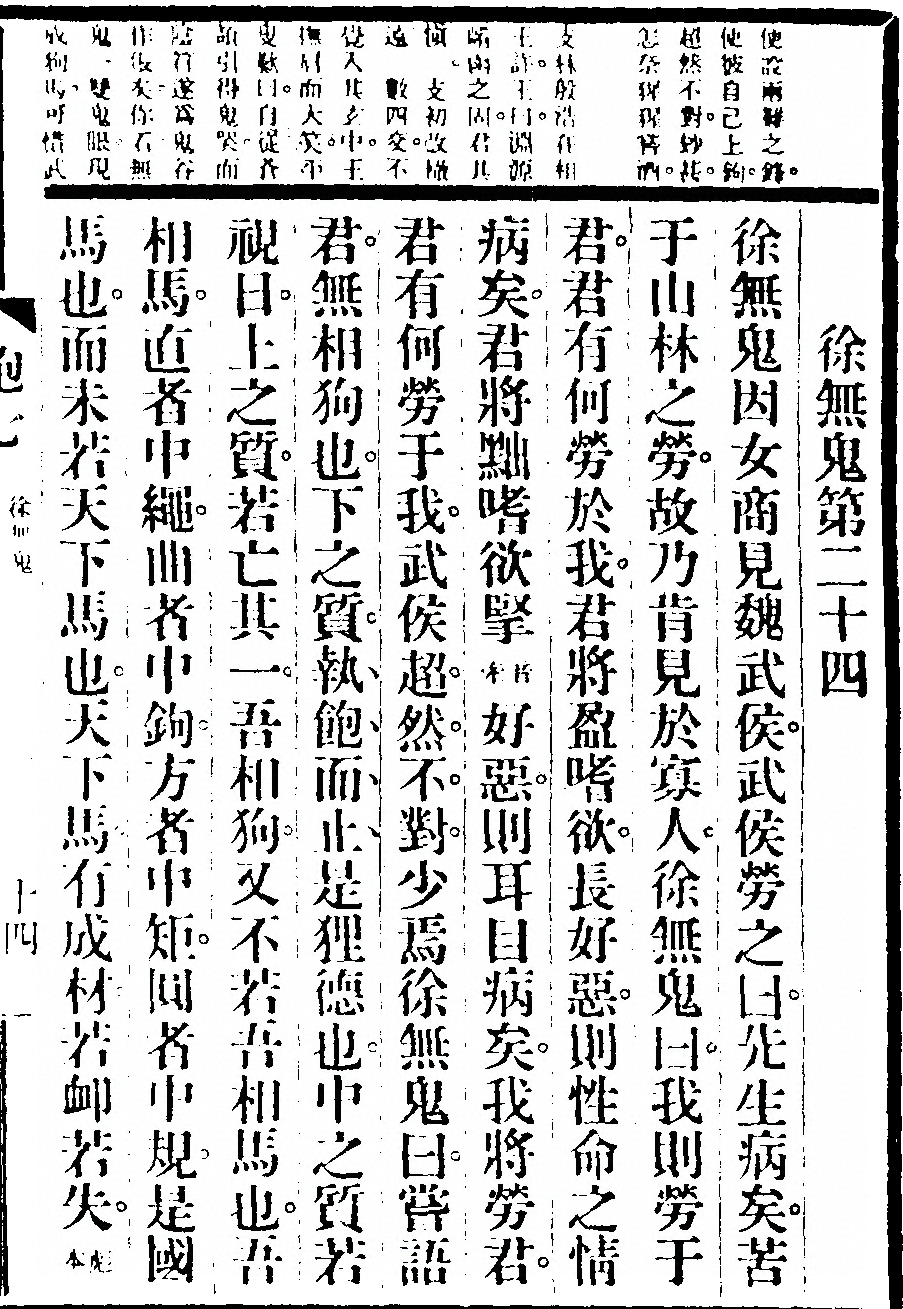 使設兩難之鋒。
使彼自己上鉤。
超然不對妙甚。
怎奈猩猩嗜酒。
支林殷浩在相
王許。王曰。淵源
崤函之固。君其
慎。支初改轍
遠。數四交。不
覺入其玄中。王
撫肩而大笑。
叟歎曰。自從蒼
頡引得鬼哭。而
陰符遂爲鬼谷
作俵矣。你看無
鬼一雙鬼眼。現
成狗馬。可惜武
徐無鬼第二十四
徐無鬼因女商見魏武侯。武侯勞之曰。先生病矣。苦
于山林之勞。故乃肯見於寡人。徐無鬼曰。我則勞于
君。君有何勞於我。君將盈嗜欲。長好惡。則性命之情
病矣。君將黜嗜欲掔苦本好惡。則耳目病矣。我將勞君。
君有何勞于我。武侯超然不對。少焉徐無鬼曰。嘗語
君。無相狗也。下之質。執飽而止是狸德也。中之質若
視日。上之質。若亡其一。吾相狗。又不若吾相馬也。吾
相馬。直者中繩。曲者中鉤。方者中矩。圓者中規。是國
馬也。而未若天下馬也。天下馬有成材。若卹若失。彪本
徐無鬼
十四